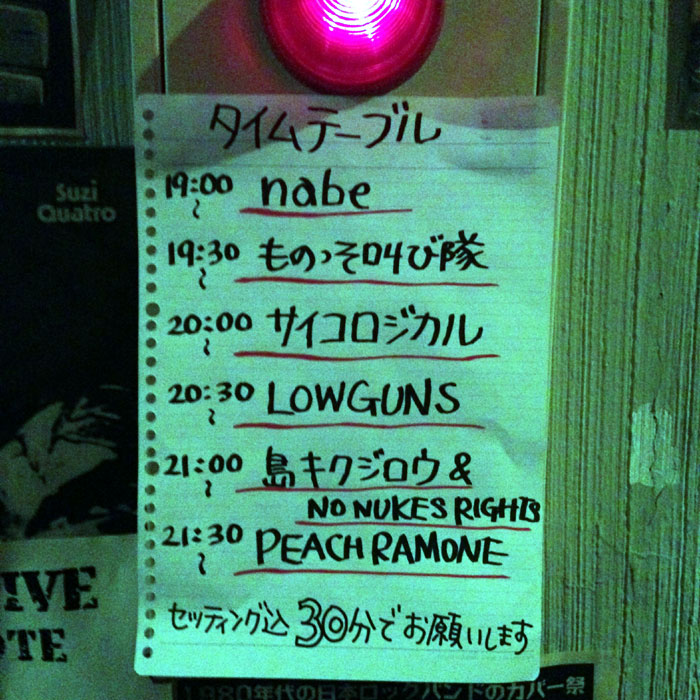 タイムテーブル
19:00
〜
nabe
19:30
〜
ものっそ叫び隊
20:00
〜
サイコロジカル
20:30
〜
LOWGUNS
21:00
〜
島キクジロウ &
NO NUKES RIGHTS
21:30
〜
PEACH RAMONE
セッティング込30分でお願いします
Suzi
Quatro
IVE
OTE
1980年代の日本ロックバンドのカバー祭